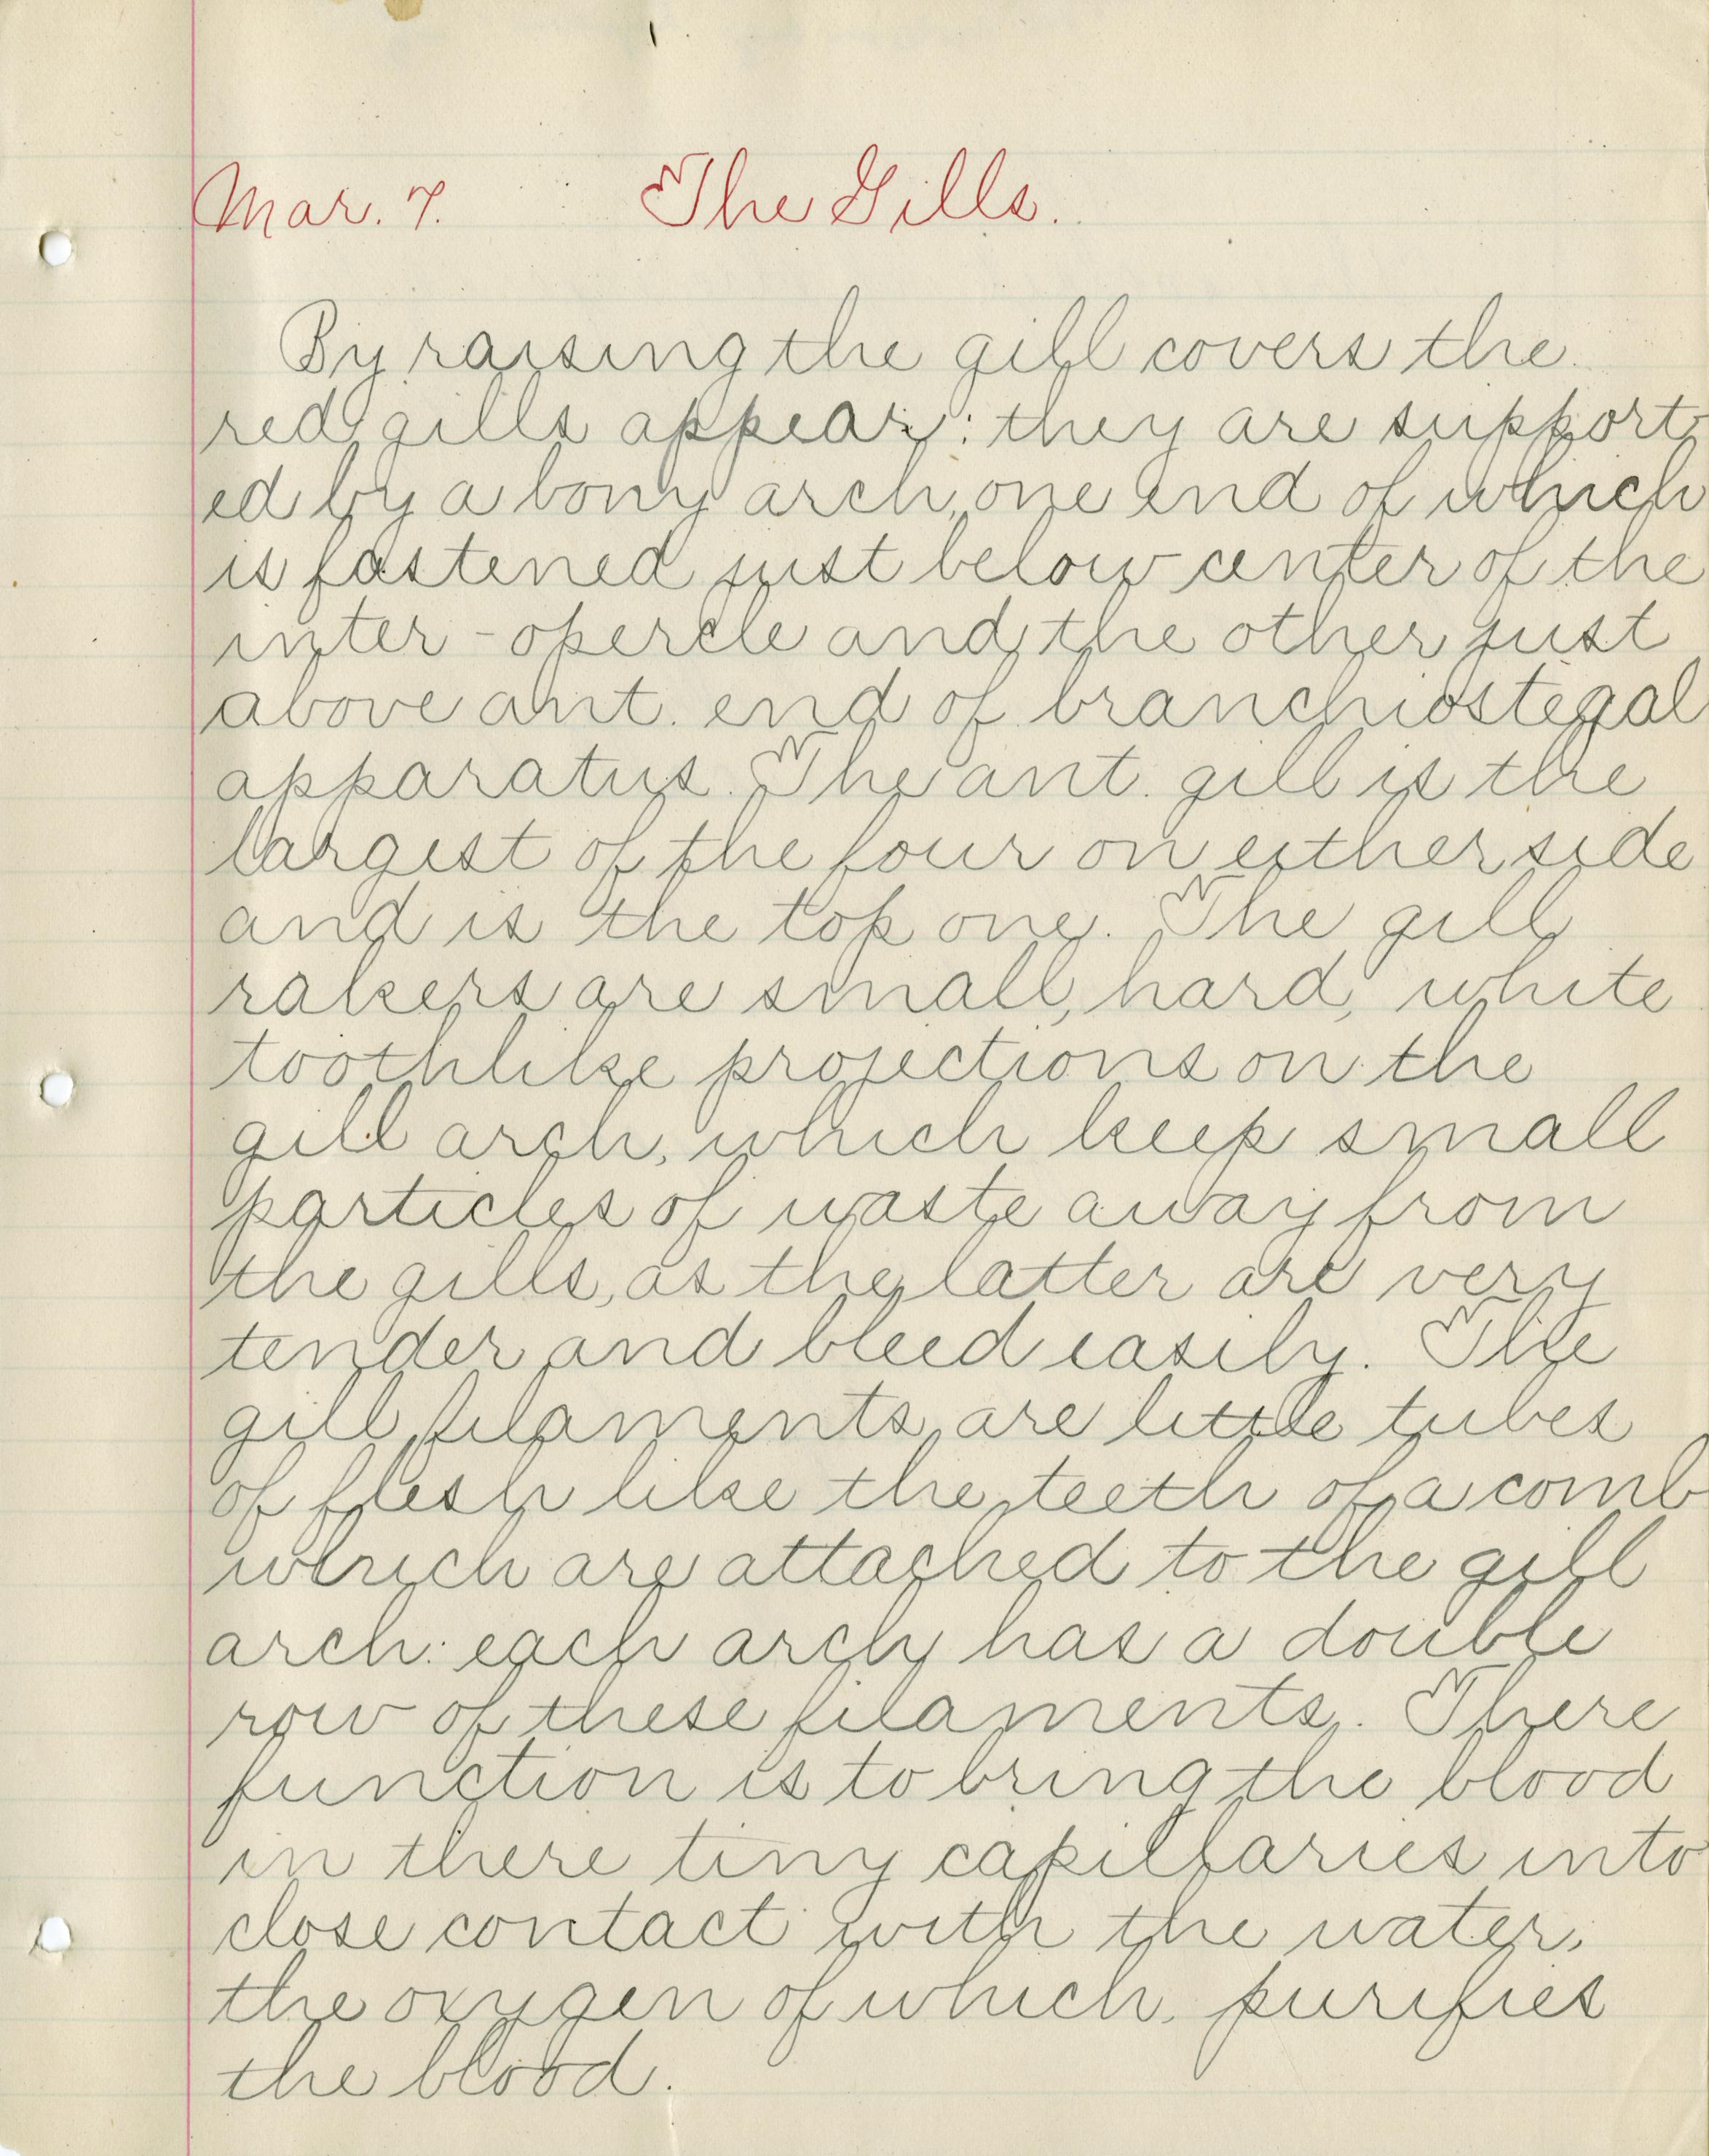 Mar. 7. The Gills.
By raising the gill covers the
red gills appear: they are support-
ed by a bony arch, one end of which
is fastened just below center of the
inter-opercle and the other just
above ant. end of branchiostegal
apparatus. The ant. gill is the
largest of the four on either side
and is the top one. The gill
rakers are small, hard, white
toothlike projections on the
gill arch, which keep small
particles of waste away from
the gills, as the latter are very
tender and bleed easily. The
gill filaments are little tubes
of flesh like the teeth of a comb
which are attached to the gill
arch: each arch has a double
row of these filaments. There
function is to bring the blood
in there tiny capillaries into
close contact with the water,
the oxygen of which, purifies
the blood.